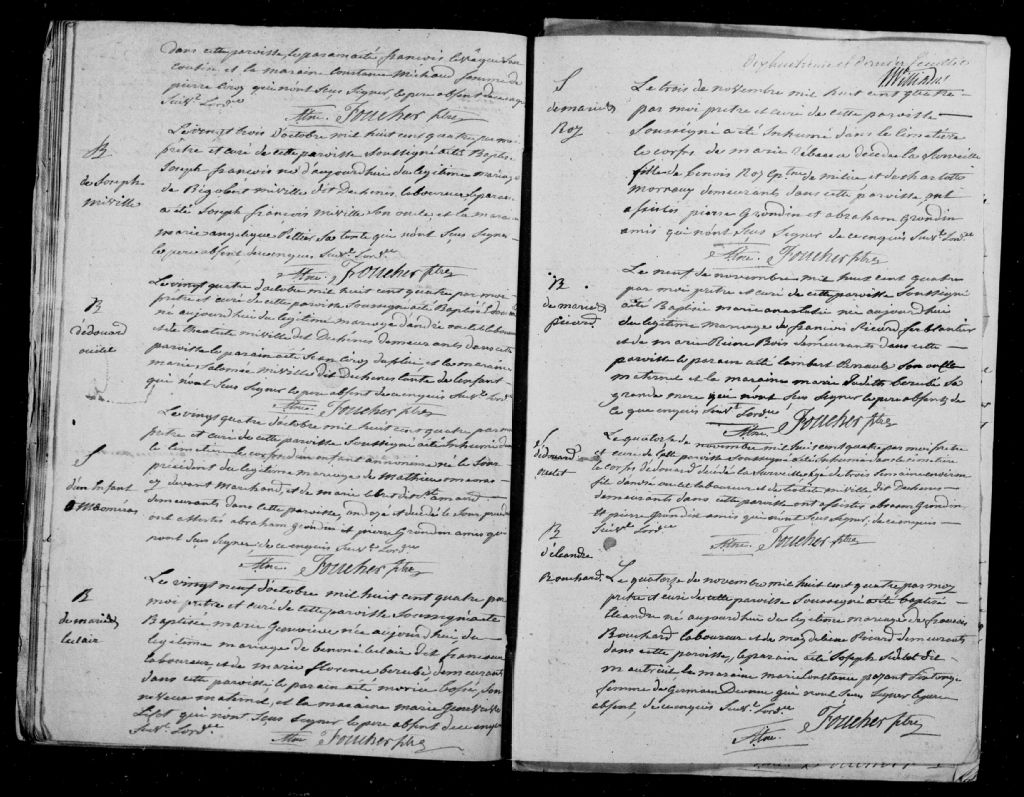 dans cette paroisse, le parain a été françois levêque Son
cousin et la maraine Constance Michaud femme de
pierre Ciroy qui n'ont Sçus Signer, le père absent de ce enquis
Suivt. l'ordce
Atne. Foucher ptre
B
de Joseph
miville
Le vingt trois d'octobre mil huit cent quatre par moi
prêtre et curé de cette paroisse Soussigné a été Baptisé
Joseph françois né d'aujourd'hui du légitime mariage
de miville dit Deschenes laboureur le parain
a été Joseph françois miville Son oncle et la maraine
marie angelique Pelletier Sa tante qui n'ont Sçus Signer
le père absent de ce enquis Suivt. l'ordce
Atne. Foucher ptre
B
d'édouard
ouelet
Le vingt quatre d'octobre mil huit cent quatre par moi
prêtre et curé de cette paroisse Soussigné a été Baptisé Edouard
né aujourd'hui du légitime mariage d'andré ouelet laboureur
et de théotiste miville dit Deschenes demeurants dans cette
paroisse le parain a été Jean Ciroy et la maraine
marie Salomée miville dit Deschenes tante de l'enfant
qui n'ont Sçus Signer le père absent de ce enquis Suivt. l'ordce
Atne. Foucher ptre
S
d'un Enfant
Anonime
Le vingt quatre d'octobre mil huit cent quatre par moi
prêtre et curé de cette paroisse Soussigné a été Inhumé dans
le Cimetière le corps d'un enfant annonime né le Jour
précédent du légitime mariage de Mathieu
devant Marchand, et de marie St amand
demeurants dans cette paroisse, ondoyé et décédé le Jour précédent
ont assistés abraham Grondin et pierre Grondin amis qui
n'ont Sçus Signer de ce enquis Suivt. l'ordce
Atne. Foucher ptre
B
de marie
leclair
Le vingt neuf d'octobre mil huit cent quatre par
moi prêtre et curé de cette paroisse Soussigné a été
Baptisée marie Genevieve née aujourd'hui du
légitime mariage de benoni leclair dit francoeur
laboureur, et de marie florence berubé demeurants
dans cette paroisse le parain a été morice Son
neveu maternel, et la maraine marie Genevieve
qui n'ont Sçus Signer le père absent de ce enquis
Suivt. l'ordce
Atne. Foucher ptre
Dixhuitieme et Dernier feuillet
S
de marie
Roy
Le trois de novembre mil huit cent quatre
par moi prêtre et curé de cette paroisse
Soussigné a été Inhumé dans le Cimetière
le corps de marie rebecca décédée la Surveille
fille de benoit Roy Cptne de milice et de charlotte
morreau demeurants dans cette paroisse ont
assistés pierre Grondin et abraham Grondin
amis qui n'ont Sçus Signer de ce enquis Suivt. l'ordce
Atne. Foucher ptre
B
de marie
picard
Le neuf de novembre mil huit cent quatre
par moi prêtre et curé de cette paroisse Soussigné
a été Baptisée marie anastasie née aujourd'hui
du légitime Mariage de françois Picard
et de marie Reine Bois demeurants dans cette
paroisse le parain a été lambert Renault Son oncle
maternel et la maraine marie Judith berubé Sa
grande mere qui n'ont Sçus Signer le père absent de
ce que enquis Suivt. l'ordce
Atne. Foucher ptre
S
d'édouard
ouelet
Le quatorse de novembre mil huit cent quatre par moi prêtre
et curé de cette paroisse Soussigné a été Inhumé dans le cimetière
le corps d'édouard décédé la Surveille agé de trois Semaines environ
fils d'andré ouelet laboureur et de théotiste miville dit Deschenes
demeurants dans cette paroisse ont assistés abraam Grondin
et pierre Grondin amis qui n'ont Sçus Signer, de ce enquis
Suivt. l'ordce
Atne. Foucher ptre
B
d'éleandre
Bouchard
Le quatorse de novembre mil huit cent quatre par moy
prêtre et curé de cette paroisse Soussigné a été baptisé
Eleandre né aujourd'hui du légitime mariage de françois
Bouchard laboureur et de magdeleine Picard demeurants
dans cette paroisse, le parain a été Joseph dit
et la maraine marie Constance
femme de Germain qui n'ont Sçus Signer le père
absent, de ce enquis Suivt. l'ordce
Atne. Foucher ptre